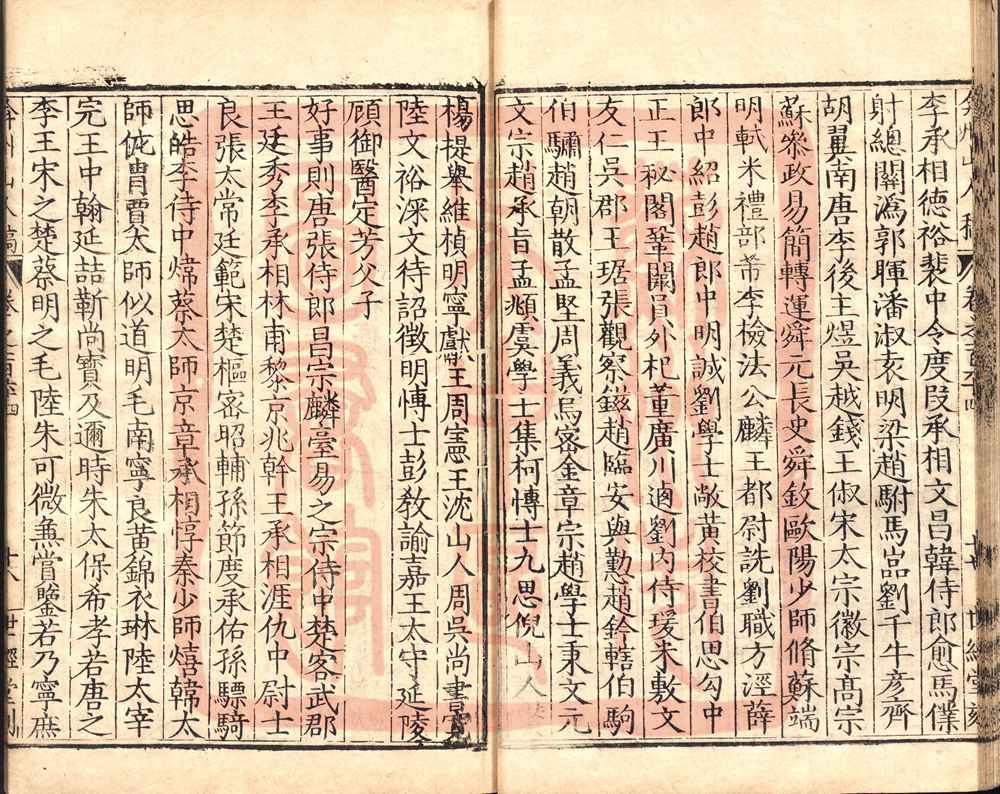 李承相德裕裴中令度段承相文昌韓侍郎愈馬僕
射總關潙郭暉潘淑袁明梁趙駙馬嵓劉千牛彦齊
胡翼南唐李後主煜吳越錢王俶宋太宗徽宗髙宗
蘇叅政易簡轉運舜元長史舜欽歐陽少師脩蘇端
明軾米禮部芾李檢法公麟王都尉詵劉職方涇薛
郎中紹彭趙郎中明誠劉學士敞黄校書伯思勾中
正王祕閣鞏闢員外杞董廣川逌劉内侍瑗米敷文
友仁吳郡王琚張觀察鎡趙臨安與懃趙鈐轄伯駒
伯驌趙朝散孟堅周義烏宻金章宗趙學士秉文元
文宗趙承旨孟頫虞學士集柯愽士九思倪山人
楊提舉維楨明寧獻王周憲王沈山人周吳尚書寛
陸文裕深文待詔徵明愽士彭教諭嘉王太守延陵
顧御醫定芳父子
好事則唐張侍郎昌宗麟臺易之宗侍中楚客武郡
王廷秀李承相林甫黎京兆幹王承相涯仇中尉士
良張太常廷範宋楚樞宻昭輔孫節度承佑孫驃騎
思皓李侍中煒蔡太師京章承相惇秦少師熺韓太
師侂胄賈太師似道明毛南寧良黄錦衣琳陸太宰
完王中翰延喆靳尚寳及邇時朱太保希孝若唐之
李王宋之楚蔡明之毛陸朱可微無嘗鑒若乃寧庶